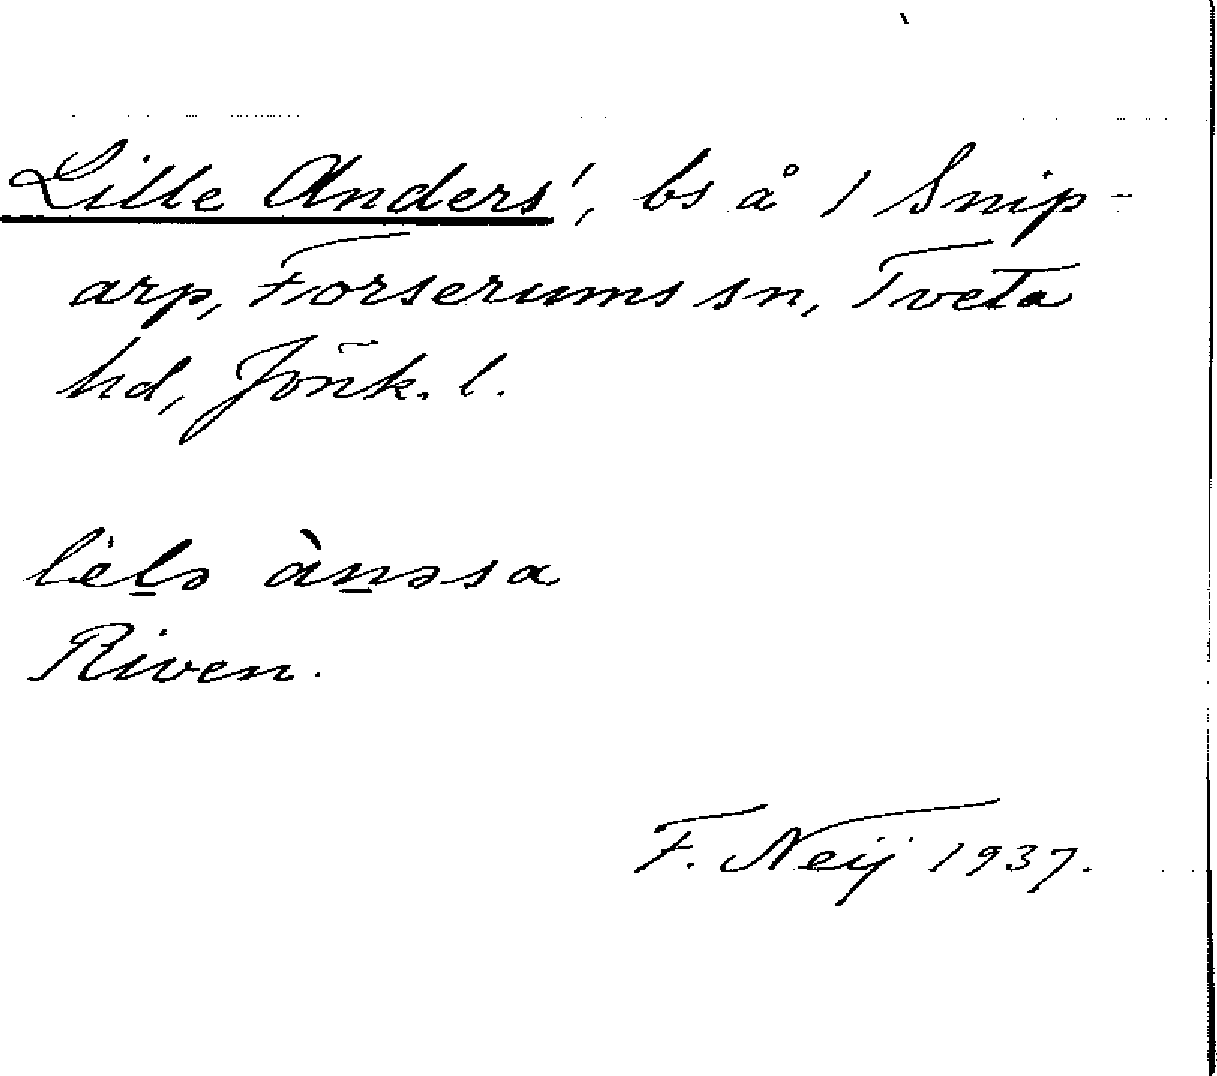 Lille Anders', bs å 1 Snip-
arp, Forserums sn, Tveta
hd, Jönk. l.
lèl̲ə àn̲əsa
Riven.
F. Neij 1937.